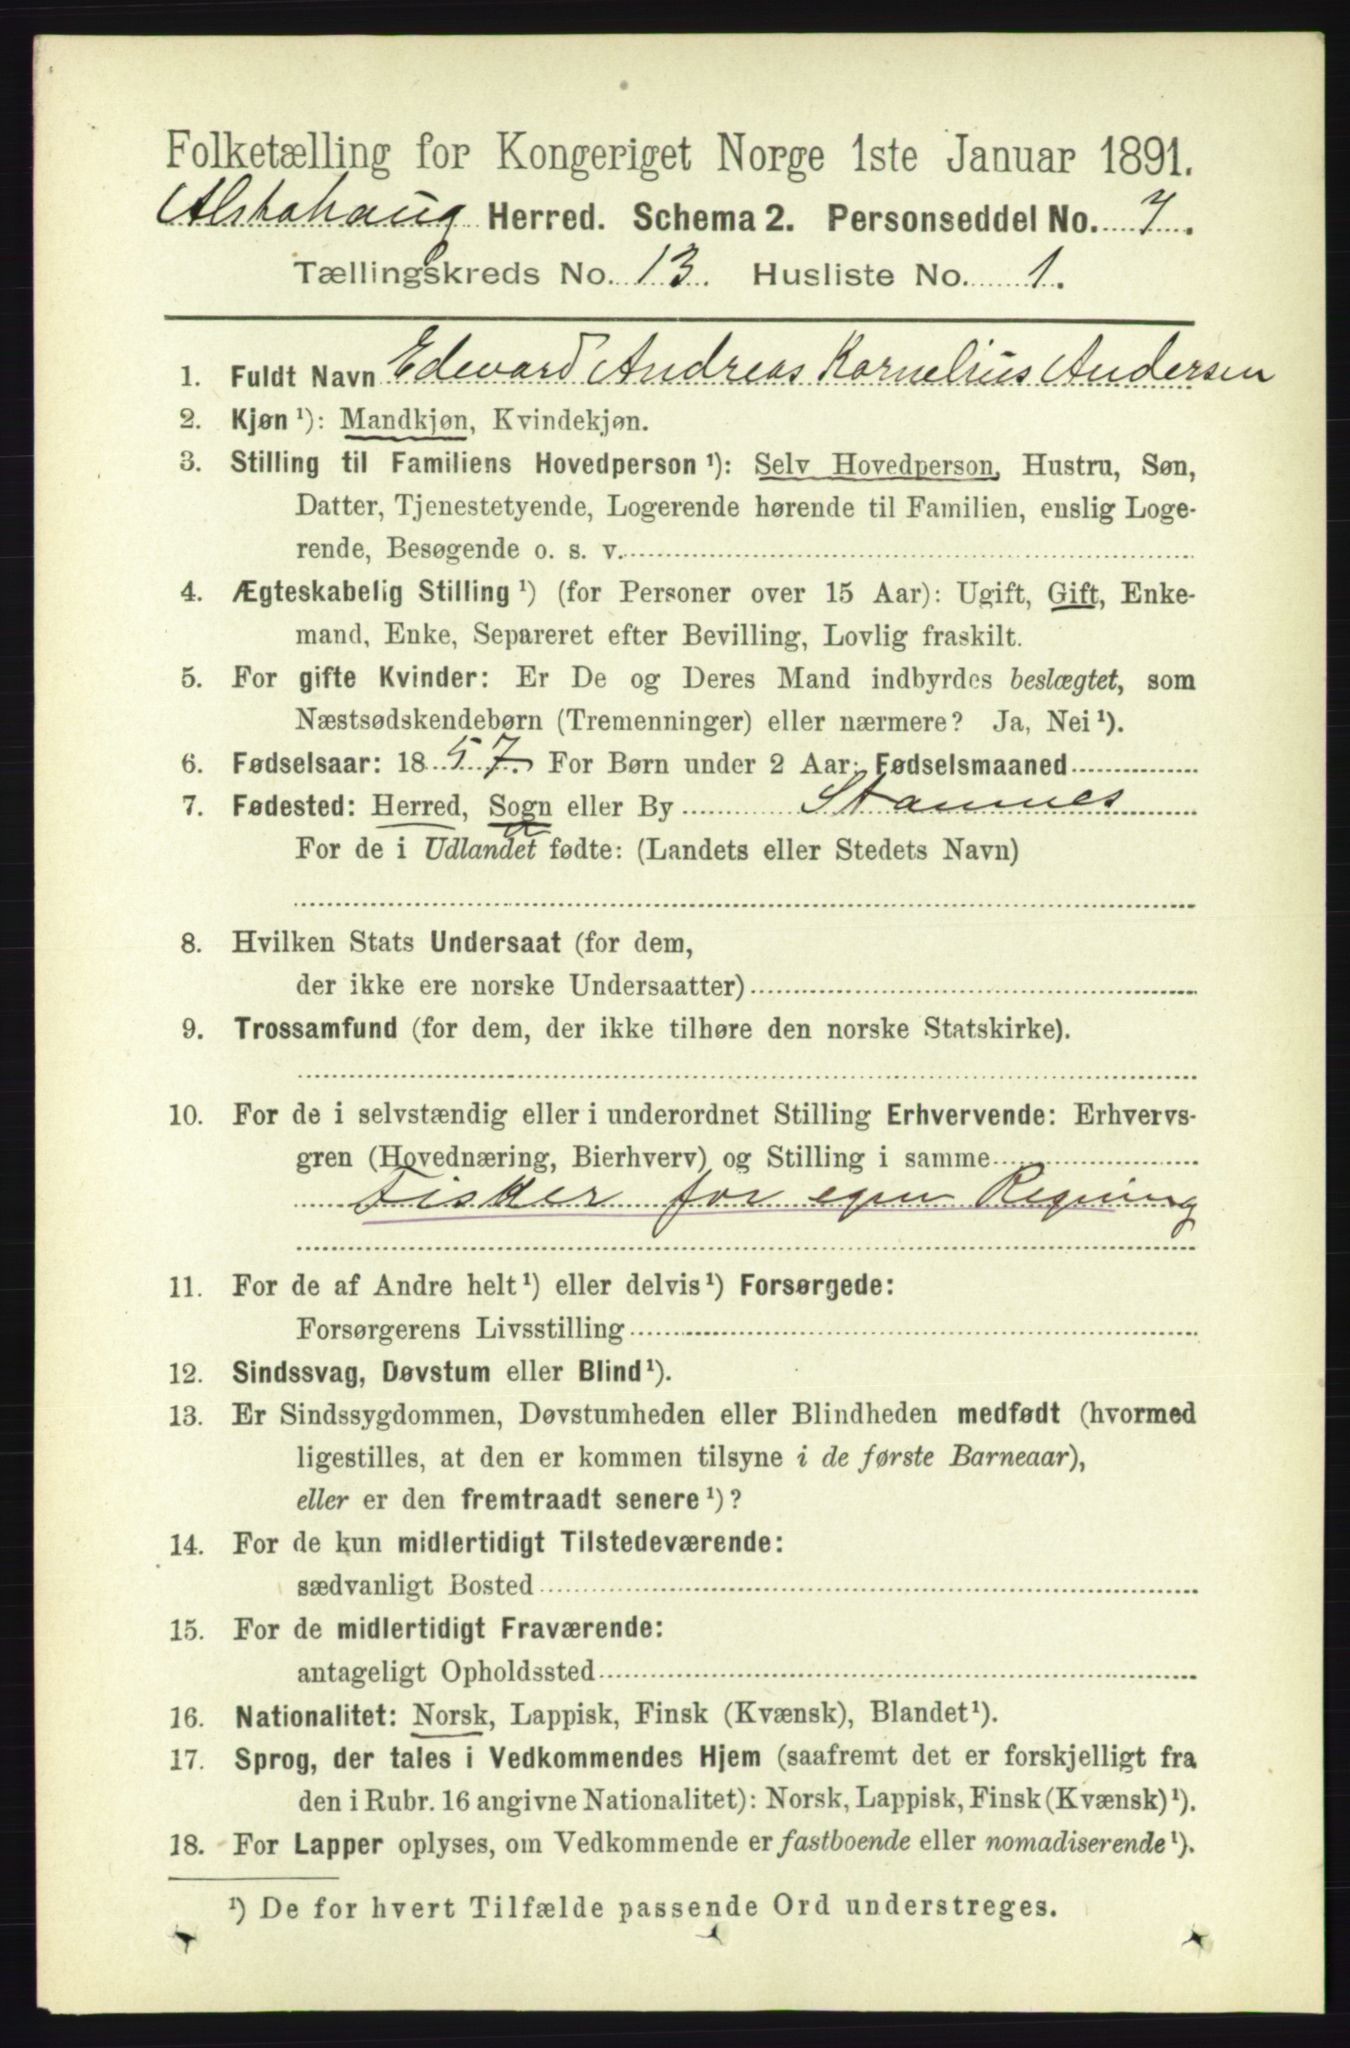 Folketælling for Kongeriget Norge 1ste Januar 1891.
Alstahaug Herred. Schema 2. Personseddel No. 7.
Tællingskreds No. 13. Husliste No. 1.
1. Fuldt Navn Edevard Andreas Kornelius Andersen
2. Kjøn ¹): Mandkjøn, Kvindekjøn.
3. Stilling til Familiens Hovedperson ¹): Selv Hovedperson, Hustru, Søn,
Datter, Tjenestetyende, Logerende hørende til Familien, enslig Loge-
rende, Besøgende o. s. v.
4. Ægteskabelig Stilling ¹) (for Personer over 15 Aar): Ugift, Gift, Enke-
mand, Enke, Separeret efter Bevilling, Lovlig fraskilt.
5. For gifte Kvinder: Er De og Deres Mand indbyrdes beslægtet, som
Næstsødskendebørn (Tremenninger) eller nærmere? Ja, Nei ¹).
6. Fødselsaar: 1857. For Børn under 2 Aar: Fødselsmaaned
7. Fødested: Herred, Sogn eller By Stamnes
For de i Udlandet fødte: (Landets eller Stedets Navn)
8. Hvilken Stats Undersaat (for dem,
der ikke ere norske Undersaatter)
9. Trossamfund (for dem, der ikke tilhøre den norske Statskirke).
10. For de i selvstændig eller i underordnet Stilling Erhvervende: Erhvervs-
gren (Hovednæring, Bierhverv) og Stilling i samme
Fisker for egen Regning
11. For de af Andre helt ¹) eller delvis ¹) Forsørgede:
Forsørgerens Livsstilling
12. Sindssvag, Døvstum eller Blind ¹).
13. Er Sindssygdommen, Døvstumheden eller Blindheden medfødt (hvormed
ligestilles, at den er kommen tilsyne i de første Barneaar),
eller er den fremtraadt senere ¹)?
14. For de kun midlertidigt Tilstedeværende:
sædvanligt Bosted
15. For de midlertidigt Fraværende:
antageligt Opholdssted
16. Nationalitet: Norsk, Lappisk, Finsk (Kvænsk), Blandet ¹).
17. Sprog, der tales i Vedkommendes Hjem (saafremt det er forskjelligt fra
den i Rubr. 16 angivne Nationalitet): Norsk, Lappisk, Finsk (Kvænsk) ¹).
18. For Lapper oplyses, om Vedkommende er fastboende eller nomadiserende ¹).
¹) De for hvert Tilfælde passende Ord understreges.